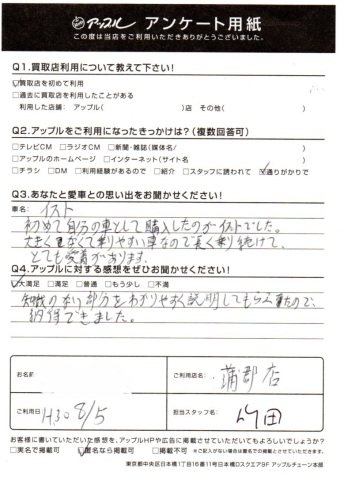 アップル アンケート用紙
この度は当店をご利用いただきありがとうございました。
Q1.買取店利用について教えて下さい!
☑買取店を初めて利用
□過去に買取店を利用したことがある
利用した店舗: アップル( )店 その他( )
Q2.アップルをご利用になったきっかけは?(複数回答可)
□テレビCM □ラジオCM □新聞・雑誌(媒体名/ )
□アップルのホームページ □インターネット(サイト名 )
□チラシ □DM □利用経験があるので □紹介 □スタッフに誘われて ☑通りがかりで
Q3.あなたと愛車との思い出をお聞かせください!
車名: イスト
初めて自分の車として購入したのがイストでした。
大きくなくて乗りやすい車なので長く乗り続けて、
とても愛着があります。
Q4.アップルに対する感想をぜひお聞かせください!
☑大満足 □満足 □普通 □もう少し □不満
知識のない部分をわかりやすく説明してもらえたので、
納得できました。
お名前
ご利用店名: 蒲郡店
ご利用日 H30 8/5
担当スタッフ名: 竹田
お客様に書いていただいた感想を、アップルHPや広告に掲載させていただいてもよろしいでしょうか?
□実名で掲載可 ☑匿名なら掲載可 □掲載不可 ※ご記入がない場合は匿名での掲載とさせていただきます。
東京都中央区日本橋1丁目16番11号日本橋Dスクエア9F アップルチェーン本部